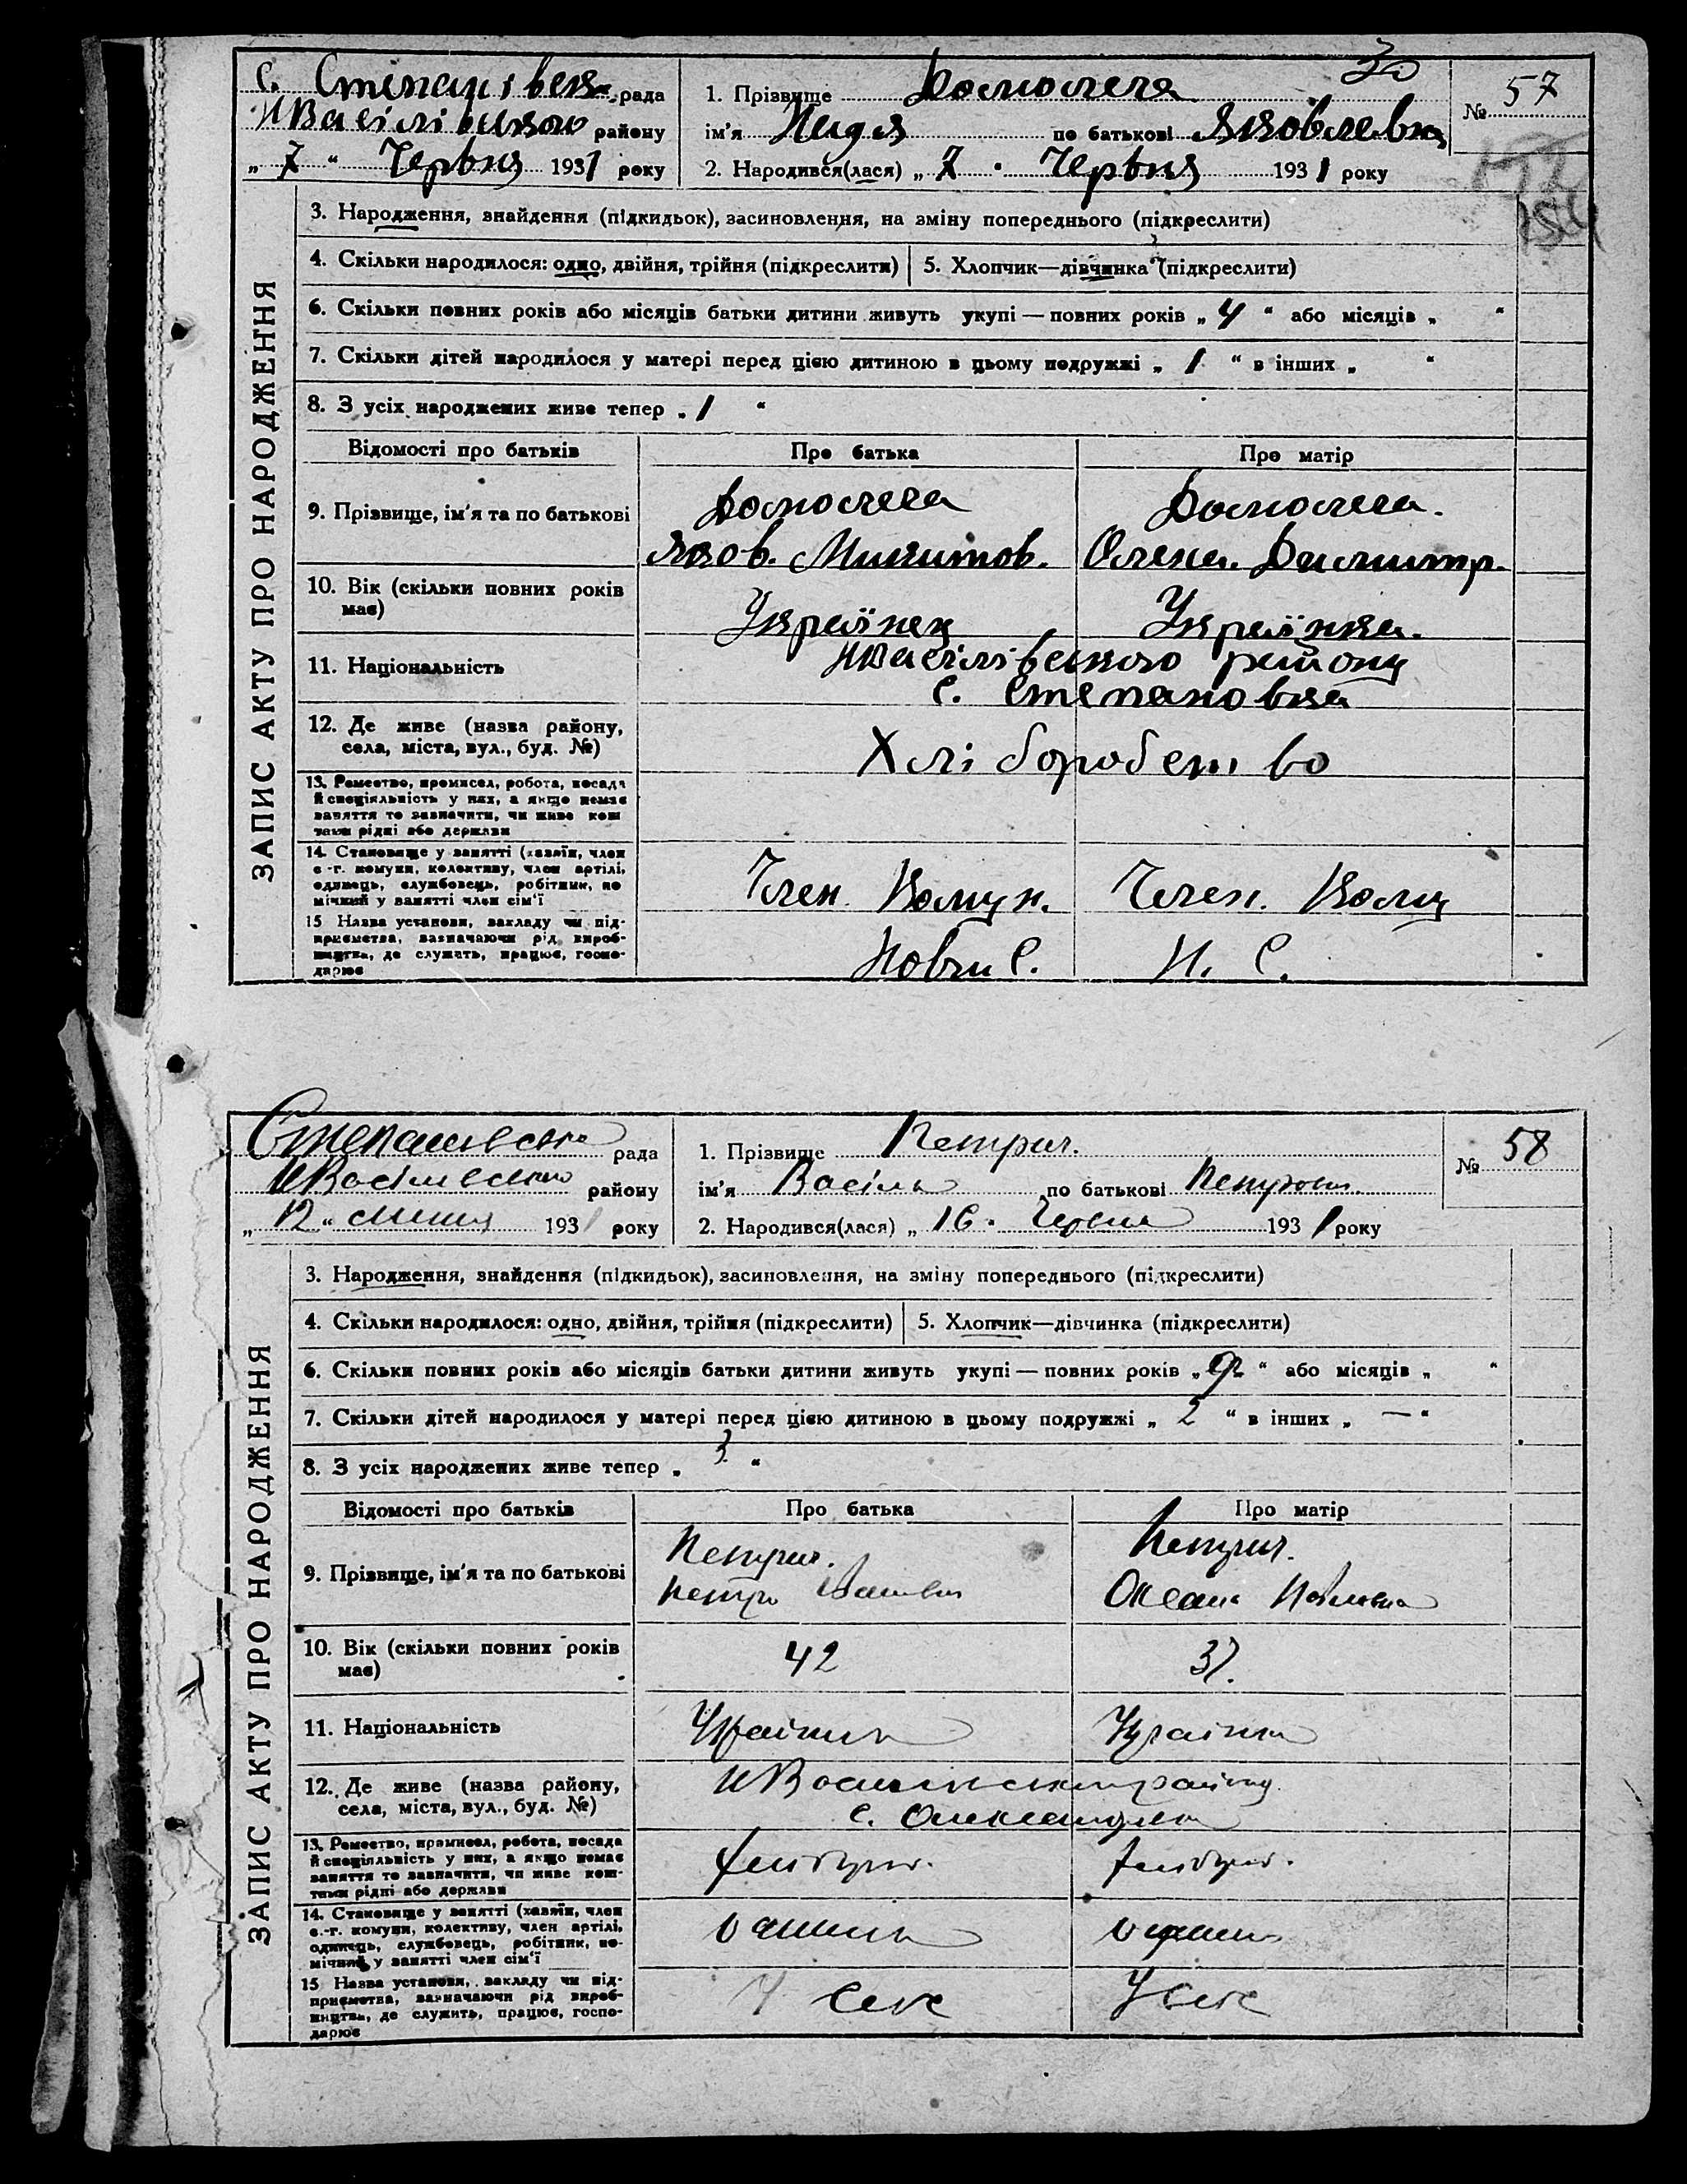 30
С. Степанівська рада
НВасілівського району
„ 7 “ Червня 1931 року
1. Прізвище Домолега
ім'я Надя по батькові Яковлевна
2. Народився(лася) „ 7 “ Червня 1931 року
№ 57
154
ЗАПИС АКТУ ПРО НАРОДЖЕННЯ
3. Народження, знайдення (підкидьок), засиновлення, на зміну попереднього (підкреслити)
4. Скільки народилося: одно, двійня, трійня (підкреслити) 5. Хлопчик—дівчинка (підкреслити)
6. Скільки повних років або місяців батьки дитини живуть укупі — повних років „ 4 “ або місяців „ “
7. Скільки дітей народилося у матері перед цією дитиною в цьому подружжі „ 1 “ в інших „ “
8. З усіх народжених живе тепер „ 1 “
Відомості про батьків Про батька Про матір
9. Прізвище, ім'я та по батькові
Домолега Домолега.
Яков. Микитов. Олена. Дмитр.
10. Вік (скільки повних років має)
Українец Українка.
11. Національність
НВасілівського району
с. Степановка
12. Де живе (назва району, села, міста, вул., буд. №)
Хліборобство
13. Ремество, промисел, робота, посада
й спеціяльність у них, а якщо немає
заняття то зазначити, чи живе кош-
тами рідні або держави
14. Становище у занятті (хазяїн, член
с.-г. комуни, колективу, член артілі,
одинець, службовець, робітник, по-
мічний у занятті член сім'ї
Член Комун. Член. Кому
15 Назва установи, закладу чи під-
приємства, зазначаючи рід вироб-
ництва, де служить, працює, госпо-
дарює
Новги С. Н. С.
Степанівська рада
НВасілівського району
„ 12 “ липня 1931 року
1. Прізвище Петрич.
ім'я Василь по батькові Петрович.
2. Народився(лася) „ 16 “ Червня 1931 року
№ 58
ЗАПИС АКТУ ПРО НАРОДЖЕННЯ
3. Народження, знайдення (підкидьок), засиновлення, на зміну попереднього (підкреслити)
4. Скільки народилося: одно, двійня, трійня (підкреслити) 5. Хлопчик—дівчинка (підкреслити)
6. Скільки повних років або місяців батьки дитини живуть укупі — повних років „ “ або місяців „ “
7. Скільки дітей народилося у матері перед цією дитиною в цьому подружжі „ 2 “ в інших „ — “
8. З усіх народжених живе тепер „ 3 “
Відомості про батьків Про батька Про матір
9. Прізвище, ім'я та по батькові
Петрич. Петрич.
Петро Іванович Оксана Павловна
10. Вік (скільки повних років має)
42 37.
11. Національність
Українець Українка
12. Де живе (назва району, села, міста, вул., буд. №)
НВасилівського району
с. Олександрівка
13. Ремество, промисел, робота, посада
й спеціяльність у них, а якщо немає
заняття то зазначити, чи живе кош-
тами рідні або держави
хлібороб. хлібороб.
14. Становище у занятті (хазяїн, член
с.-г. комуни, колективу, член артілі,
одинець, службовець, робітник, по-
мічний у занятті член сім'ї
одинець одинець
15 Назва установи, закладу чи під-
приємства, зазначаючи рід вироб-
ництва, де служить, працює, госпо-
дарює
У селі У селі